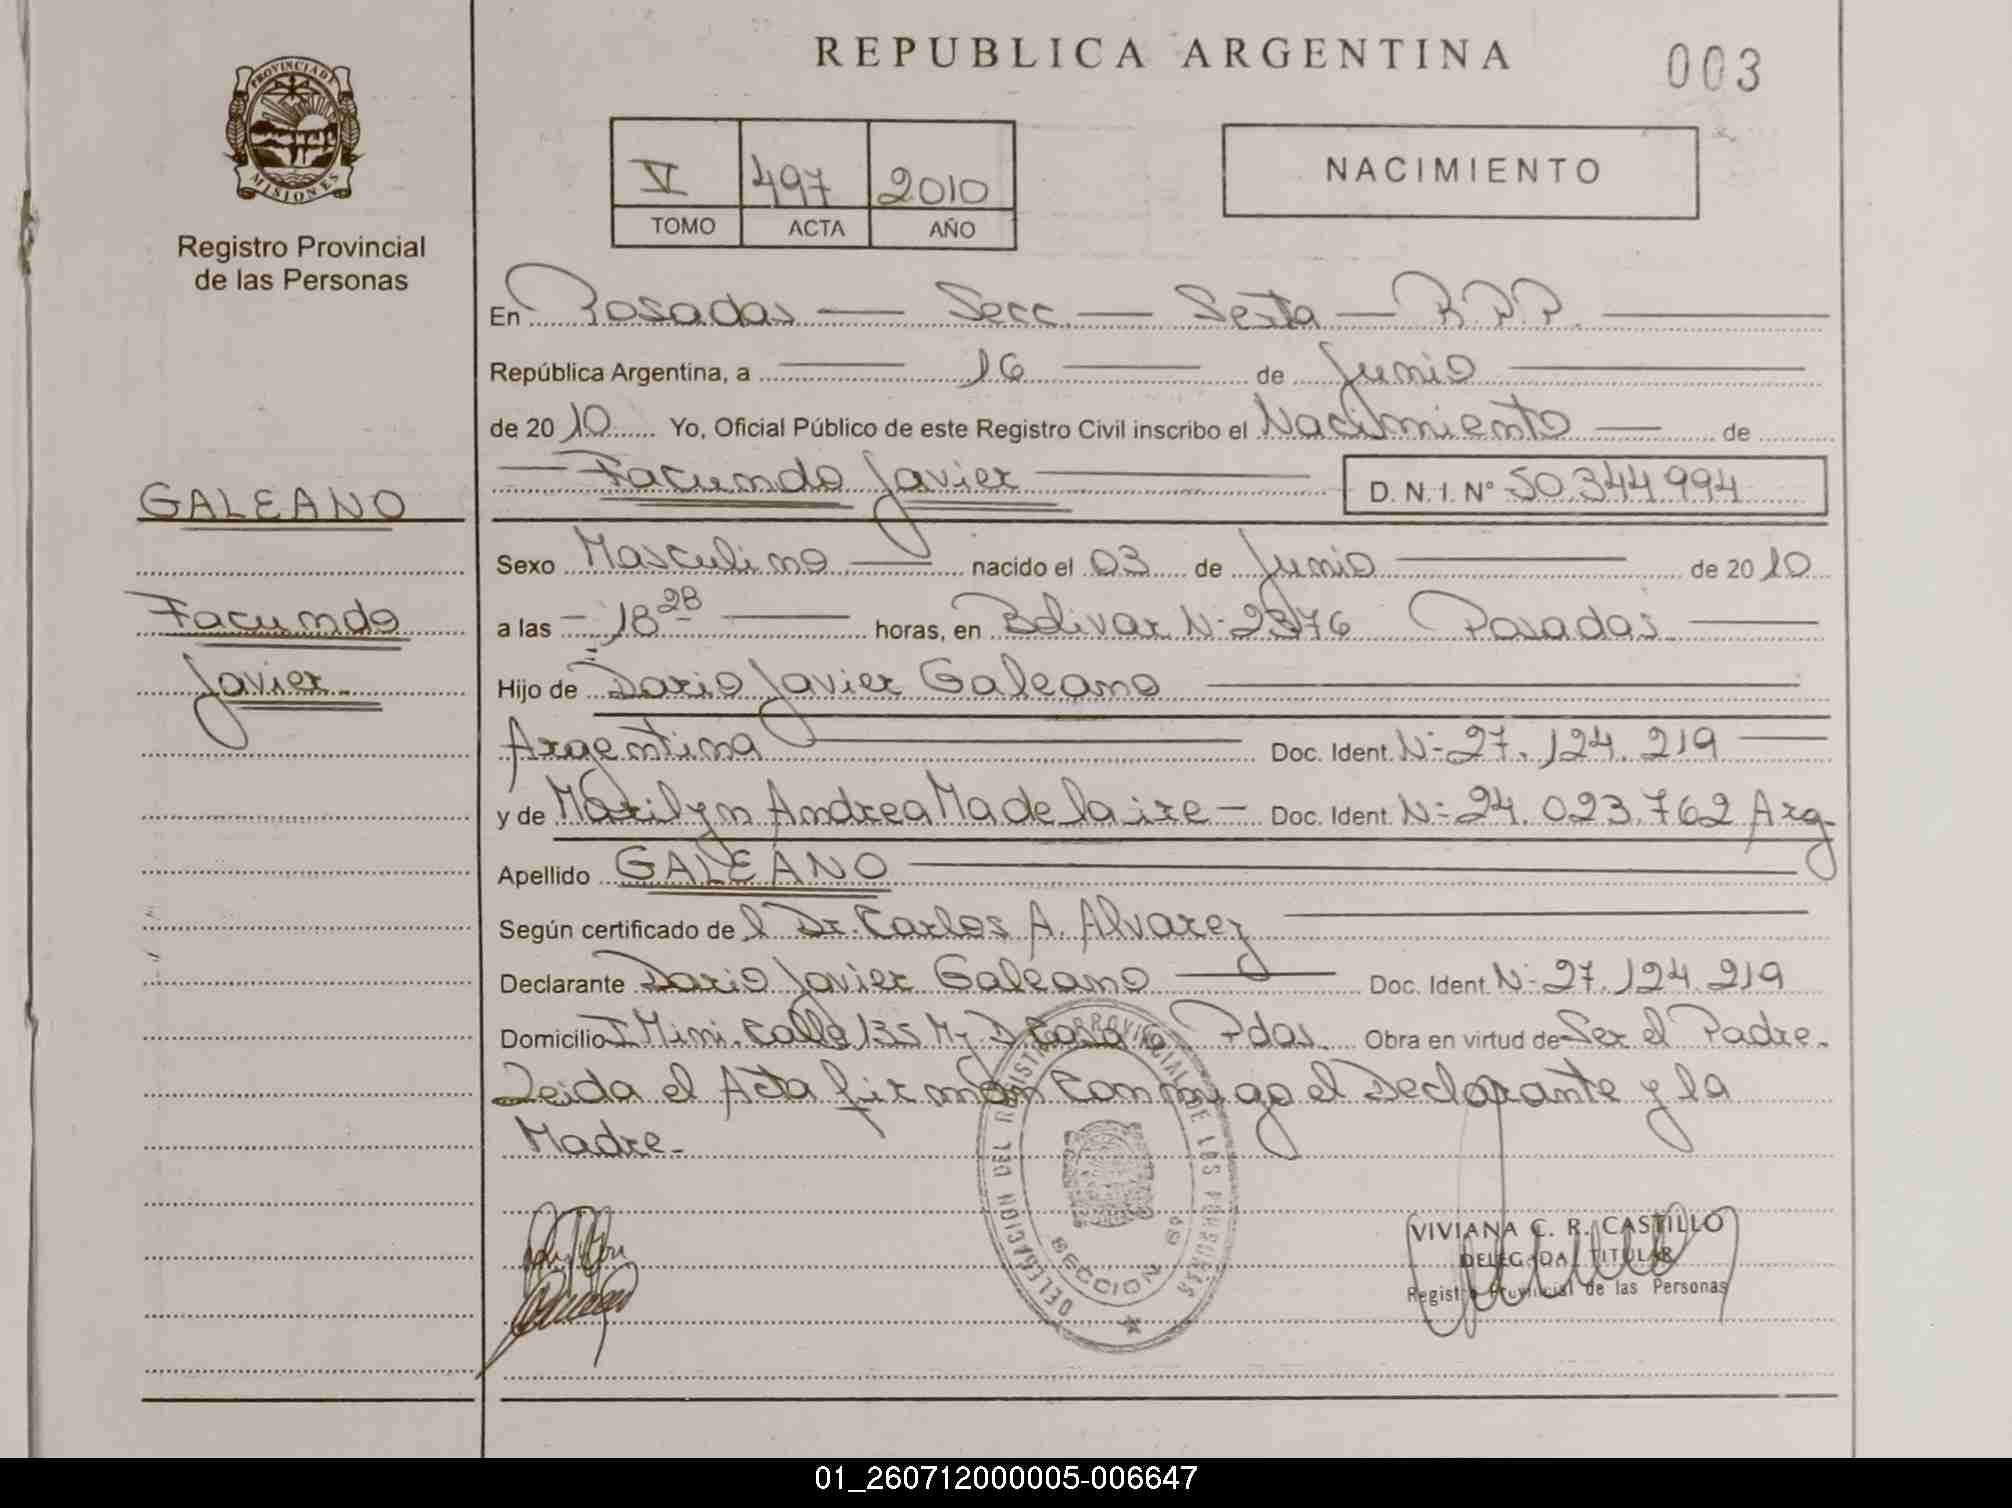 REPUBLICA ARGENTINA
003
PROVINCIA DE
MISIONES
Registro Provincial
de las Personas
V 497 2010
TOMO ACTA AÑO
NACIMIENTO
En Posadas — Secc. — Sexta — R.P.P.
República Argentina, a 16 de Junio
de 2010 Yo, Oficial Público de este Registro Civil inscribo el Nacimiento de
Facundo Javier D.N.I. Nº 50.344.994
GALEANO
Facundo
Javier
Sexo Masculino nacido el 03 de Junio de 2010
a las 18 28 horas, en Bolivar N- 2376 Posadas
Hijo de Dario Javier Galeano
Argentina Doc. Ident. N- 27.124.219
y de Marilyn Andrea Madelaire — Doc. Ident. N- 24.023.762 Arg.
Apellido GALEANO
Según certificado de l Dr. Carlos A. Alvarez
Declarante Dario Javier Galeano Doc. Ident. N- 27.124.219
Domicilio I Mini. Calle 135 Mz D Casa Pdas. Obra en virtud de Ser el Padre.
Leida el Acta firman Conmigo el Declarante y la
Madre.
DELEGACION DEL REGISTRO PROVINCIAL DE LAS PERSONAS
SECCION 6ª
VIVIANA C. R. CASTILLO
DELEGADA TITULAR
Registro Provincial de las Personas
01_260712000005-006647